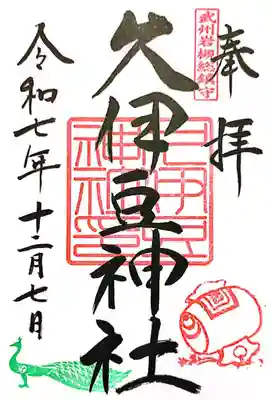 奉拝
武州岩槻総鎮守
久伊豆神社
久伊豆神社印
令和七年十二月七日